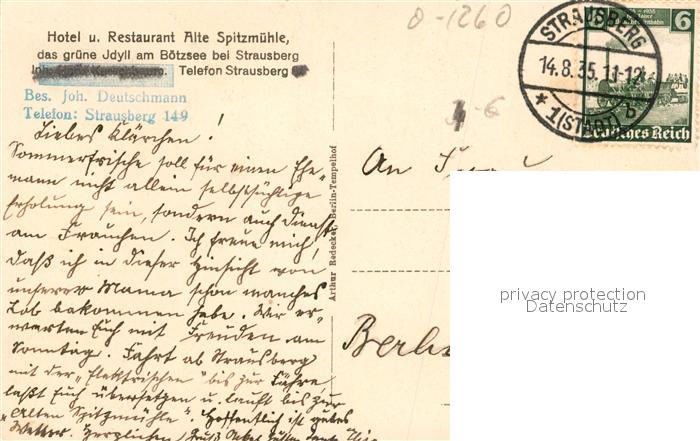 Hotel u. Restaurant Alte Spitzmühle,
das grüne Jdyll am Bötzsee bei Strausberg
Telefon Strausberg
Bes. Joh. Deutschmann
Telefon: Strausberg 149
Liebes Klärchen!
Sommerfrische soll für einen Ehe-
mann nicht allein selbstsüchtige
Erholung sein, sondern auch Dienst
am Frauchen. Ich freue mich,
daß ich in dieser Hinsicht von
unserer Mama schon manches
Lob bekommen habe. Wir er-
warten Euch mit Freuden am
Sonntag. Fahrt ab Strausberg
mit der „Elektrischen" bis zur Fähre
laßt Euch übersetzen u. lauft bis zur
„Alten Spitzmühle". Hoffentlich ist gutes
Wetter. Herzlichen Gruß
Arthur Redecker, Berlin-Tempelhof
0-1260
STRAUSBERG
14.8.35.11-12
* 1 (STADT) b
6
Deutsches Reich
An
Berlin
privacy protection
Datenschutz